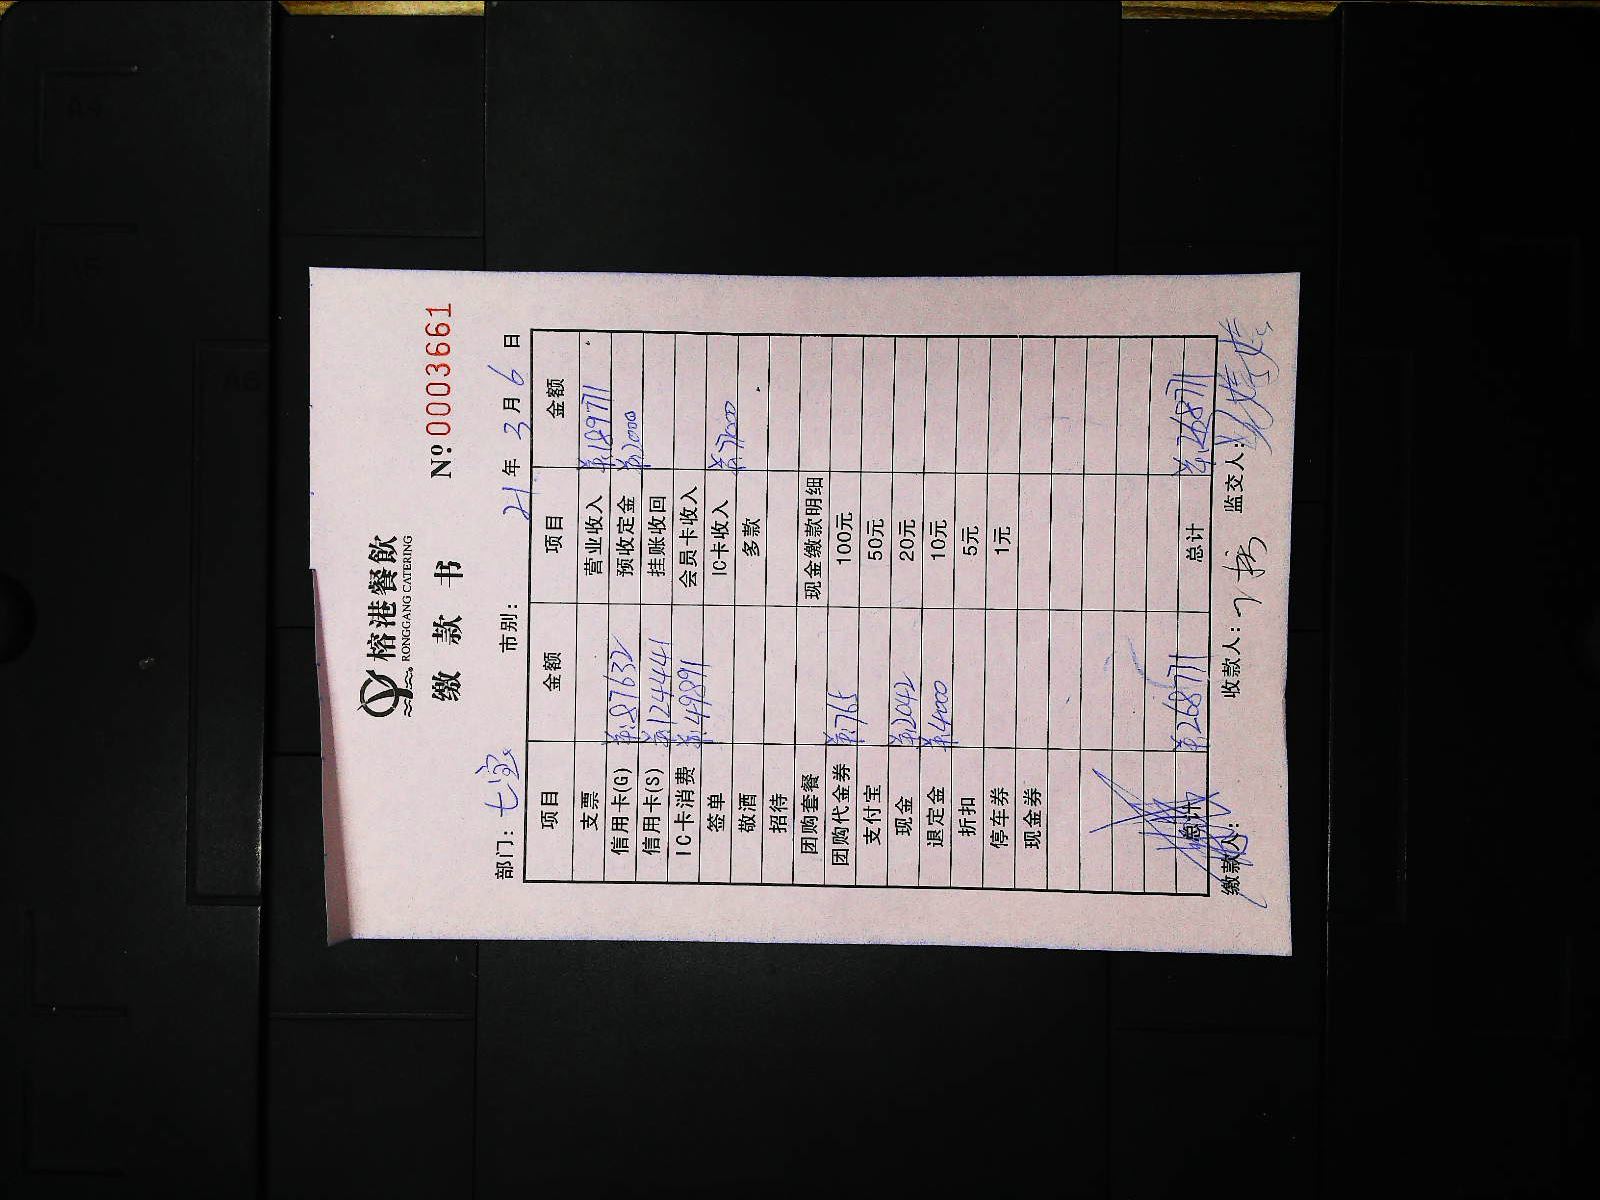 榕港餐飲
RONGGANG CATERING
缴 款 书 Nº 0003661
部门: 七宝 市别: 21 年 3 月 6 日
项目 金额 项目 金额
支票 营业收入 ¥:189771
信用卡(G) ¥:87632 预收定金 ¥:2000
信用卡(S) ¥:124441 挂账收回
IC卡消费 ¥:49891 会员卡收入
签单 IC卡收入 ¥:77000
敬酒 多款
招待
团购套餐 现金缴款明细
团购代金券 ¥:765 100元
支付宝 50元
现金 ¥:2042 20元
退定金 ¥:4000 10元
折扣 5元
停车券 1元
现金券
总计 ¥:268771 总计 ¥:268771
缴款人: 收款人: 监交人: